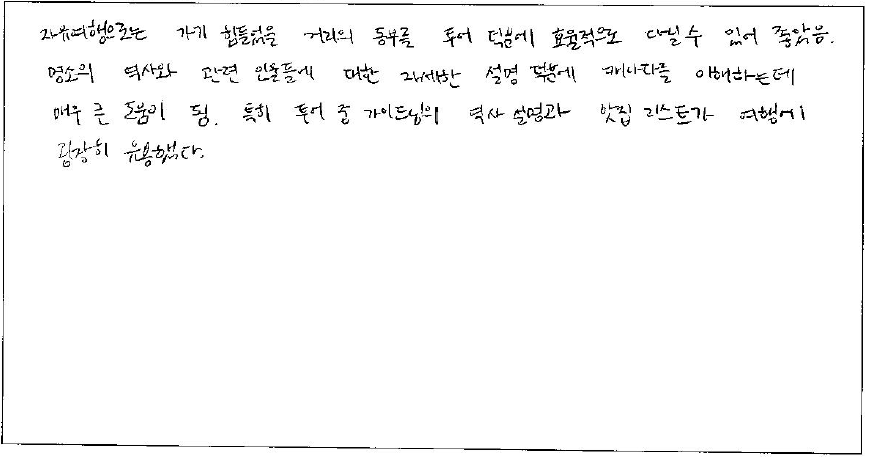 자유여행으로는 가기 힘들었을 거리의 동부를 투어 덕분에 효율적으로 다닐 수 있어 좋았음.
명소의 역사와 관련 인물들에 대한 자세한 설명 덕분에 캐나다를 이해하는데
매우 큰 도움이 됨. 특히 투어 중 가이드님의 역사 설명과 맛집 리스트가 여행에
굉장히 유용했다.